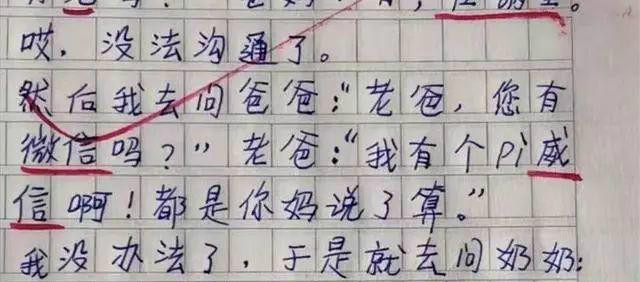 哎，没法沟通了。
然后我去问爸爸："老爸，您有
微信吗？"老爸："我有个Pì威
信啊！都是你妈说了算。"
我没办法了，于是就去问奶奶：